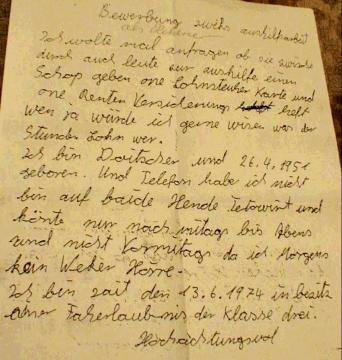 Bewerbung zwehs aushilfsarbeit
als
Ich wolte mal anfragen ob sie
durch auch leute zur aushilfe einen
Schop geben one Lohnsteuher Karte und
one Renten Versicherungs heft
wen ja würde ich gerne wisen was der
Stunden Lohn wer.
Ich bin Doitscher und 26.4.1951
geboren. Und Telefon habe ich nicht
bin auf baide Hende Tetowirt und
könte nur nach mitags bis Abens
und nicht Vormitags da ich Morgens
kein Weker Hörre.
Ich bin zait den 13.6.1974 in besitz
einer Faherlaubnis der Klasse drei.
Hochachtungsvol